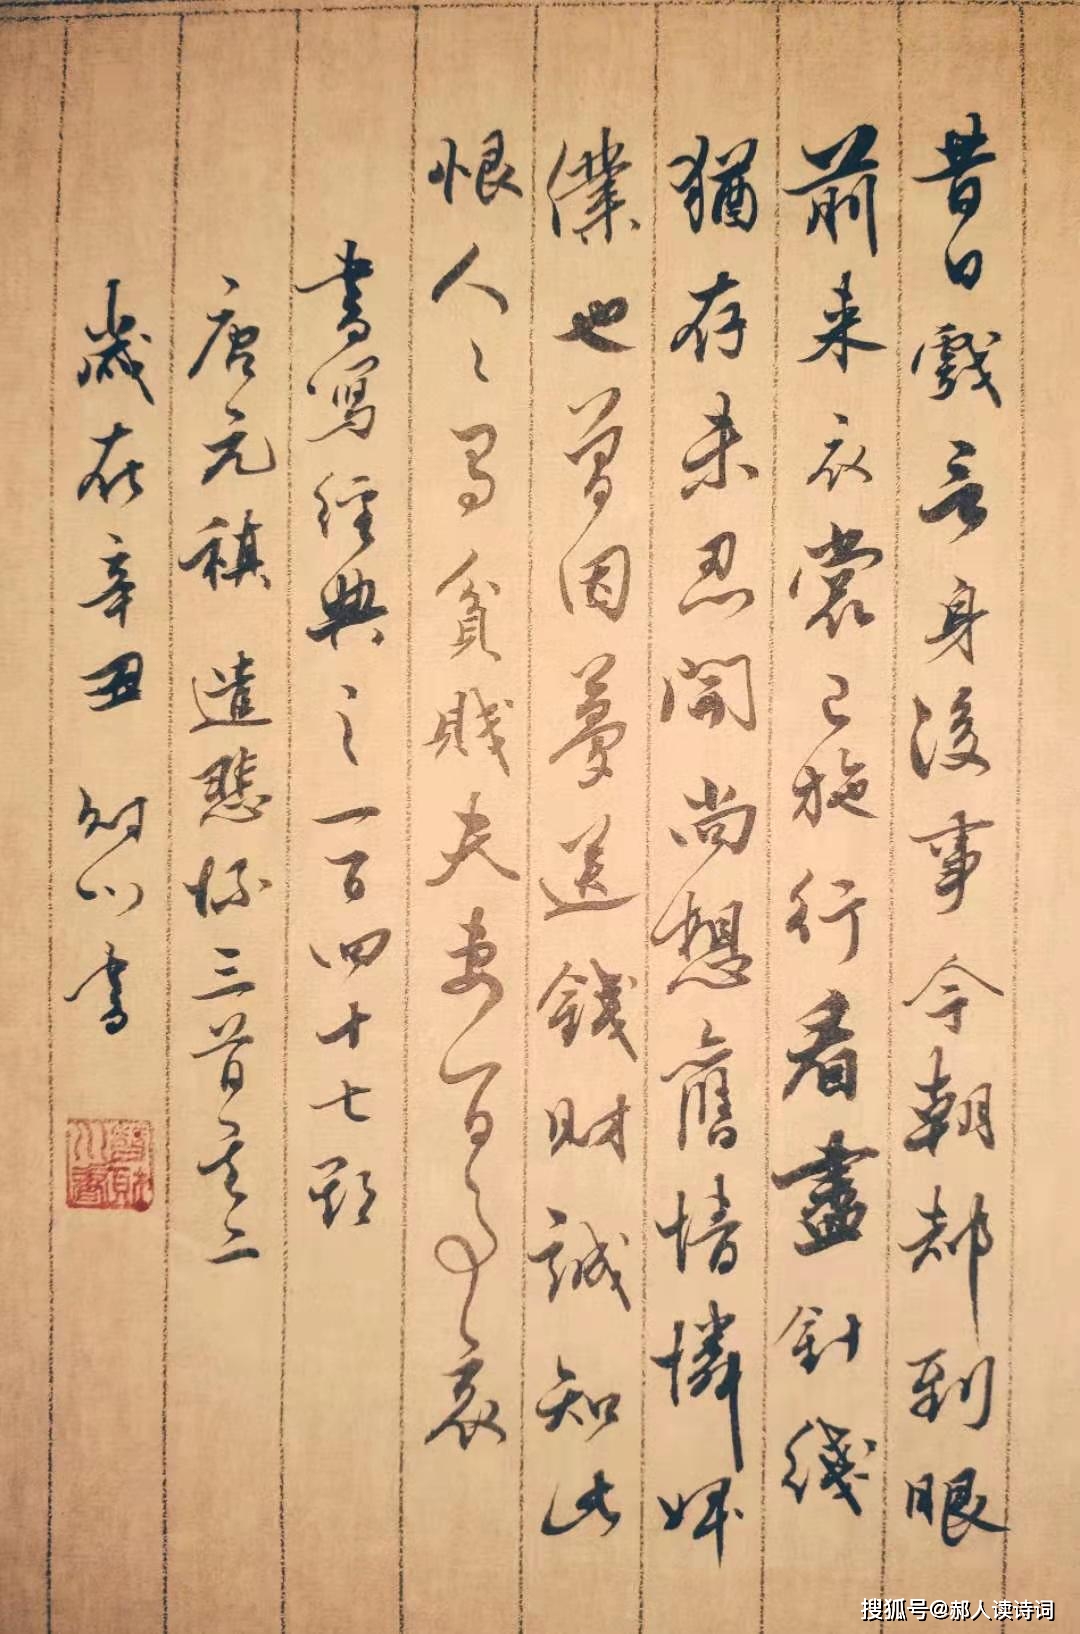 昔日戲言身後事今朝都到眼
前来衣裳已施行看盡針綫
猶存未忍開尚想舊情憐婢
僕也曾因夢送錢財誠知此
恨人〻有貧賤夫妻百事哀
書寫經典之一百四十七
唐元稹 遣悲懷三首其二
歲在辛丑 川書
搜狐号@郝人读诗词